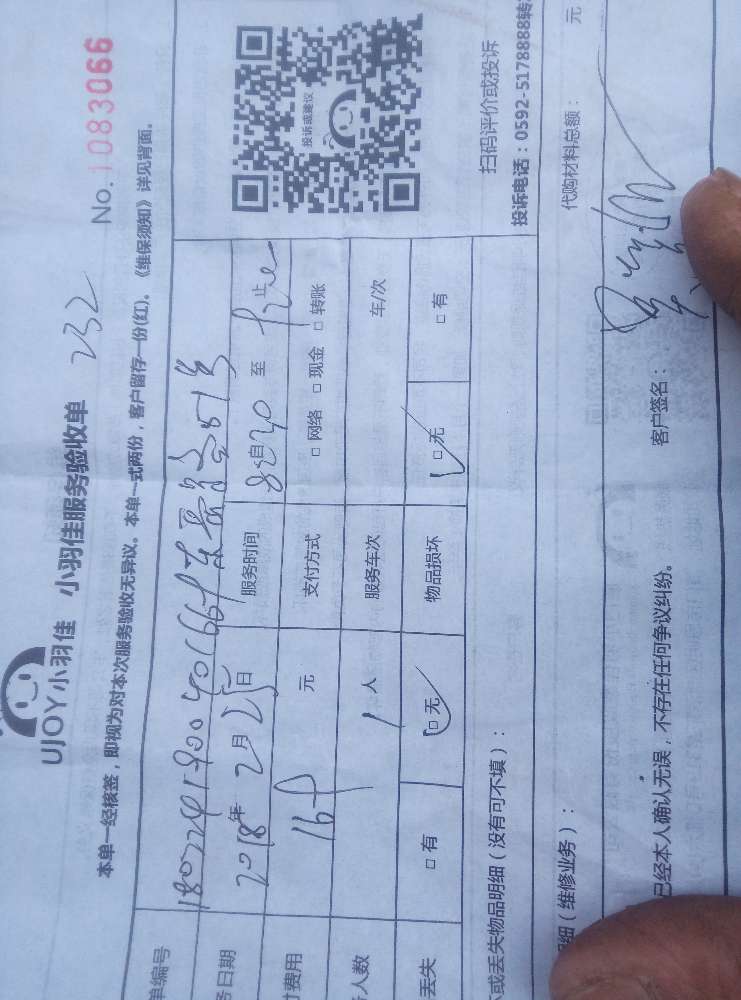 UJOY小羽佳 小羽佳服务验收单 232
No.1083066
本单一经核签，即视为对本次服务验收无异议。本单一式两份，客户留存一份(红)。《维保须知》详见背面。
单编号
务日期 2018年2月25日 服务时间 自 至 止
付费用 168元 支付方式 □网络 □现金 □转账
务人数 1人 服务车次 车/次
丢失 □有 □无 物品损坏 □无 □有
投诉或建议
扫码评价或投诉
投诉电话：0592-5178888转
坏或丢失物品明细（没有可不填）：
细（维修业务）： 代购材料总额： 元
已经本人确认无误，不存在任何争议纠纷。 客户签名：